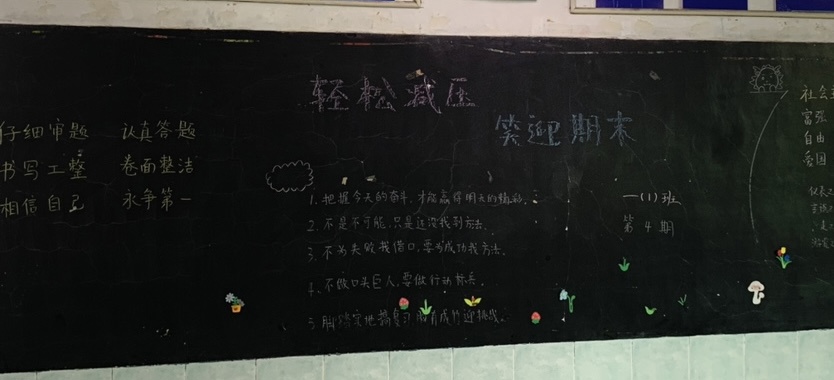 轻松减压
笑迎期末
仔细审题 认真答题
书写工整 卷面整洁
相信自己 永争第一
1.把握今天的奋斗,才能赢得明天的
2.不是不可能,只是还没找到方法.
3.不为失败找借口,要为成功找方法.
4.不做口头巨人,要做行动标兵.
5.脚踏实地搞复习 胸有成竹迎挑战.
一(1)班
第4期
社会主
富强
自由
爱国